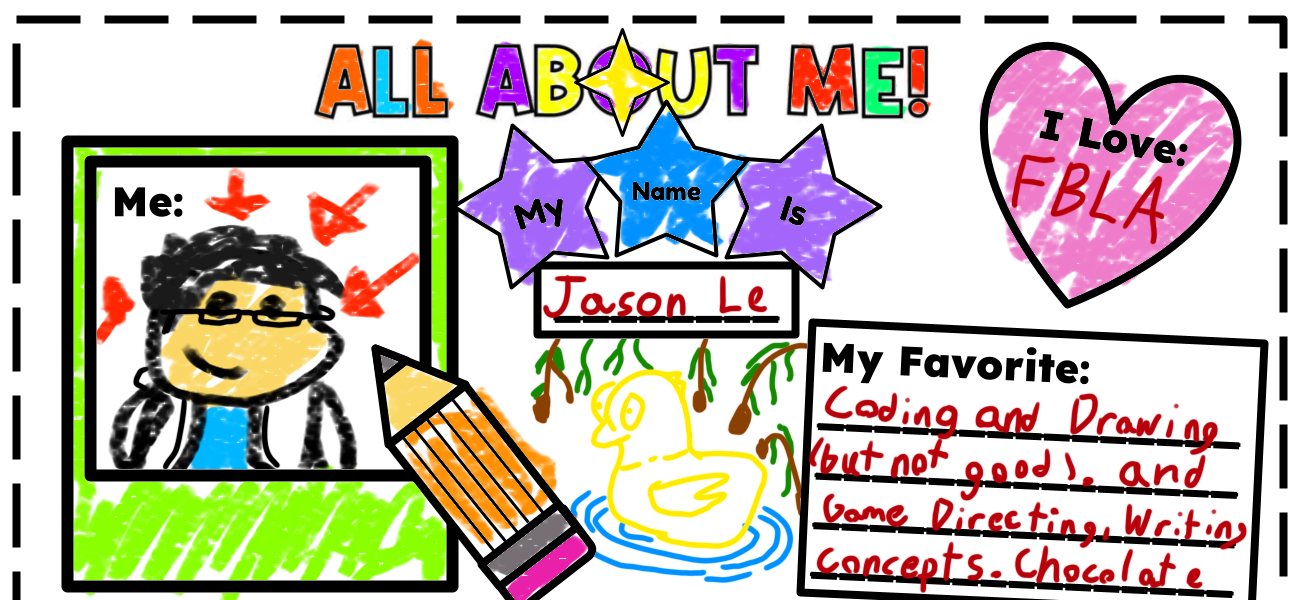 ALL ABOUT ME!
I Love:
FBLA
Me:
My Name Is
Jason Le
My Favorite:
Coding and Drawing
(but not good). and
Game Directing, Writing
concepts. Chocolate